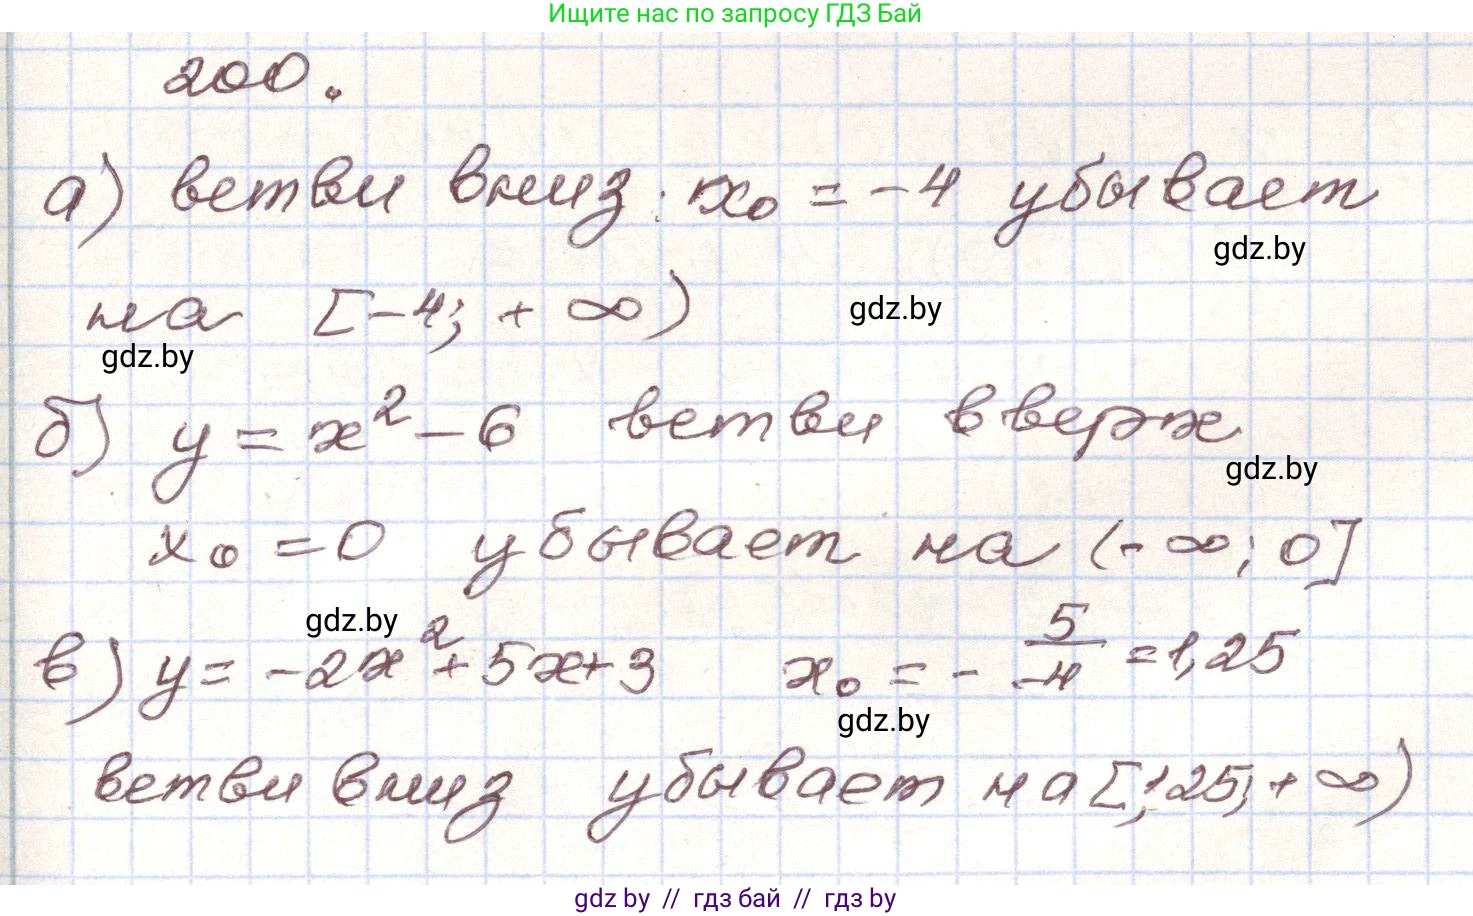 Ищите нас по запросу ГДЗ Бай
200.
а) ветви вниз. x₀ = -4 убывает
gdz.by
на [-4; + ∞)
gdz.by
gdz.by
б) y = x² - 6 ветви вверх
gdz.by
x₀ = 0 убывает на (- ∞; 0]
gdz.by
в) y = -2x² + 5x + 3 x₀ = - 5/-4 = 1,25
gdz.by
ветви вниз убывает на [1,25; + ∞)
gdz.by // гдз бай // гдз by